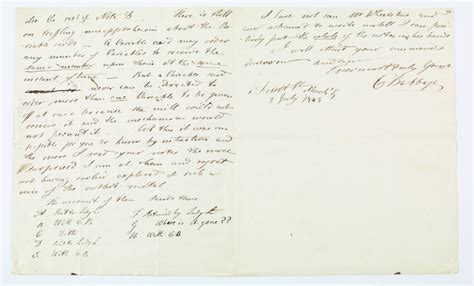 also the rest of Note D there is still
one trifling misapprehension about the Va-
riable cards A Variable card may order
any number of Variables to receive the
same number upon theirs at the same
instant of time — But a Variable card
never can be directed to
order more than one Variable to be given
off at once because the mill could not
receive it and the mechanism would
not permit it. All this it was im-
possible for you to know by intuition and
the more I read your notes the more
surprised I am at them and regret
not having earlier explored so rich a
vein of the noblest metal
The account of them stands thus
A With Lady L
B With CB
C Ditto
D
E With CB
F Retained by Lady L
G Where is it gone??
H With CB
I have not seen Mr Wheatstone and
I will attend your commands
tomorrow and am
Ever most truly Yours
C Babbage
Dorset St Manch Sq
2 July 1843